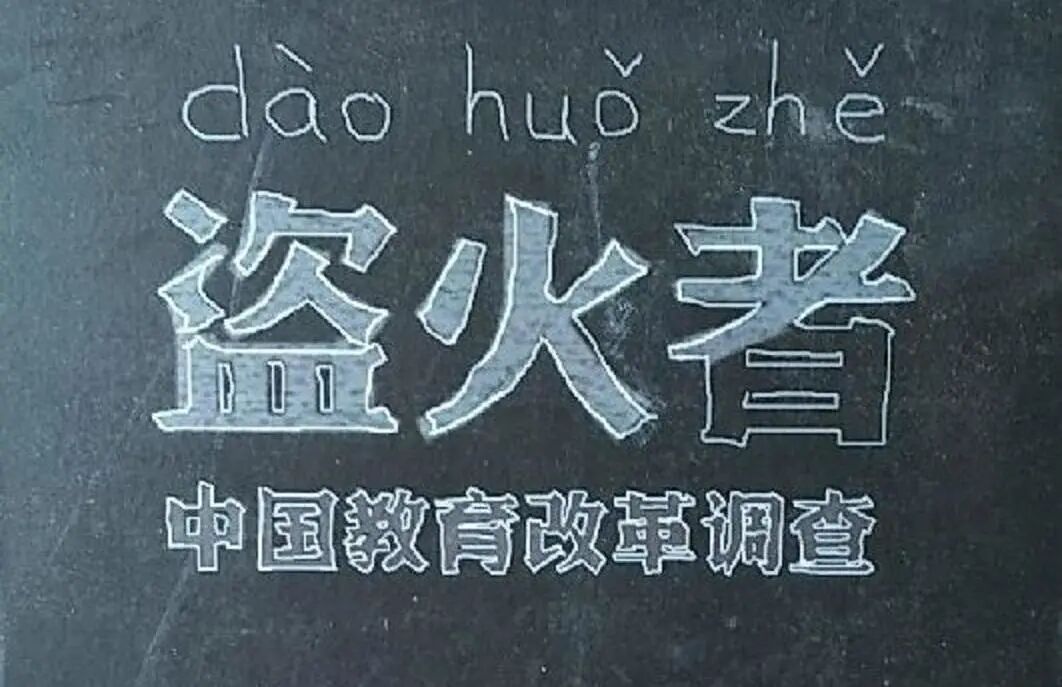 dào huǒ zhě
盗火者
中国教育改革调查